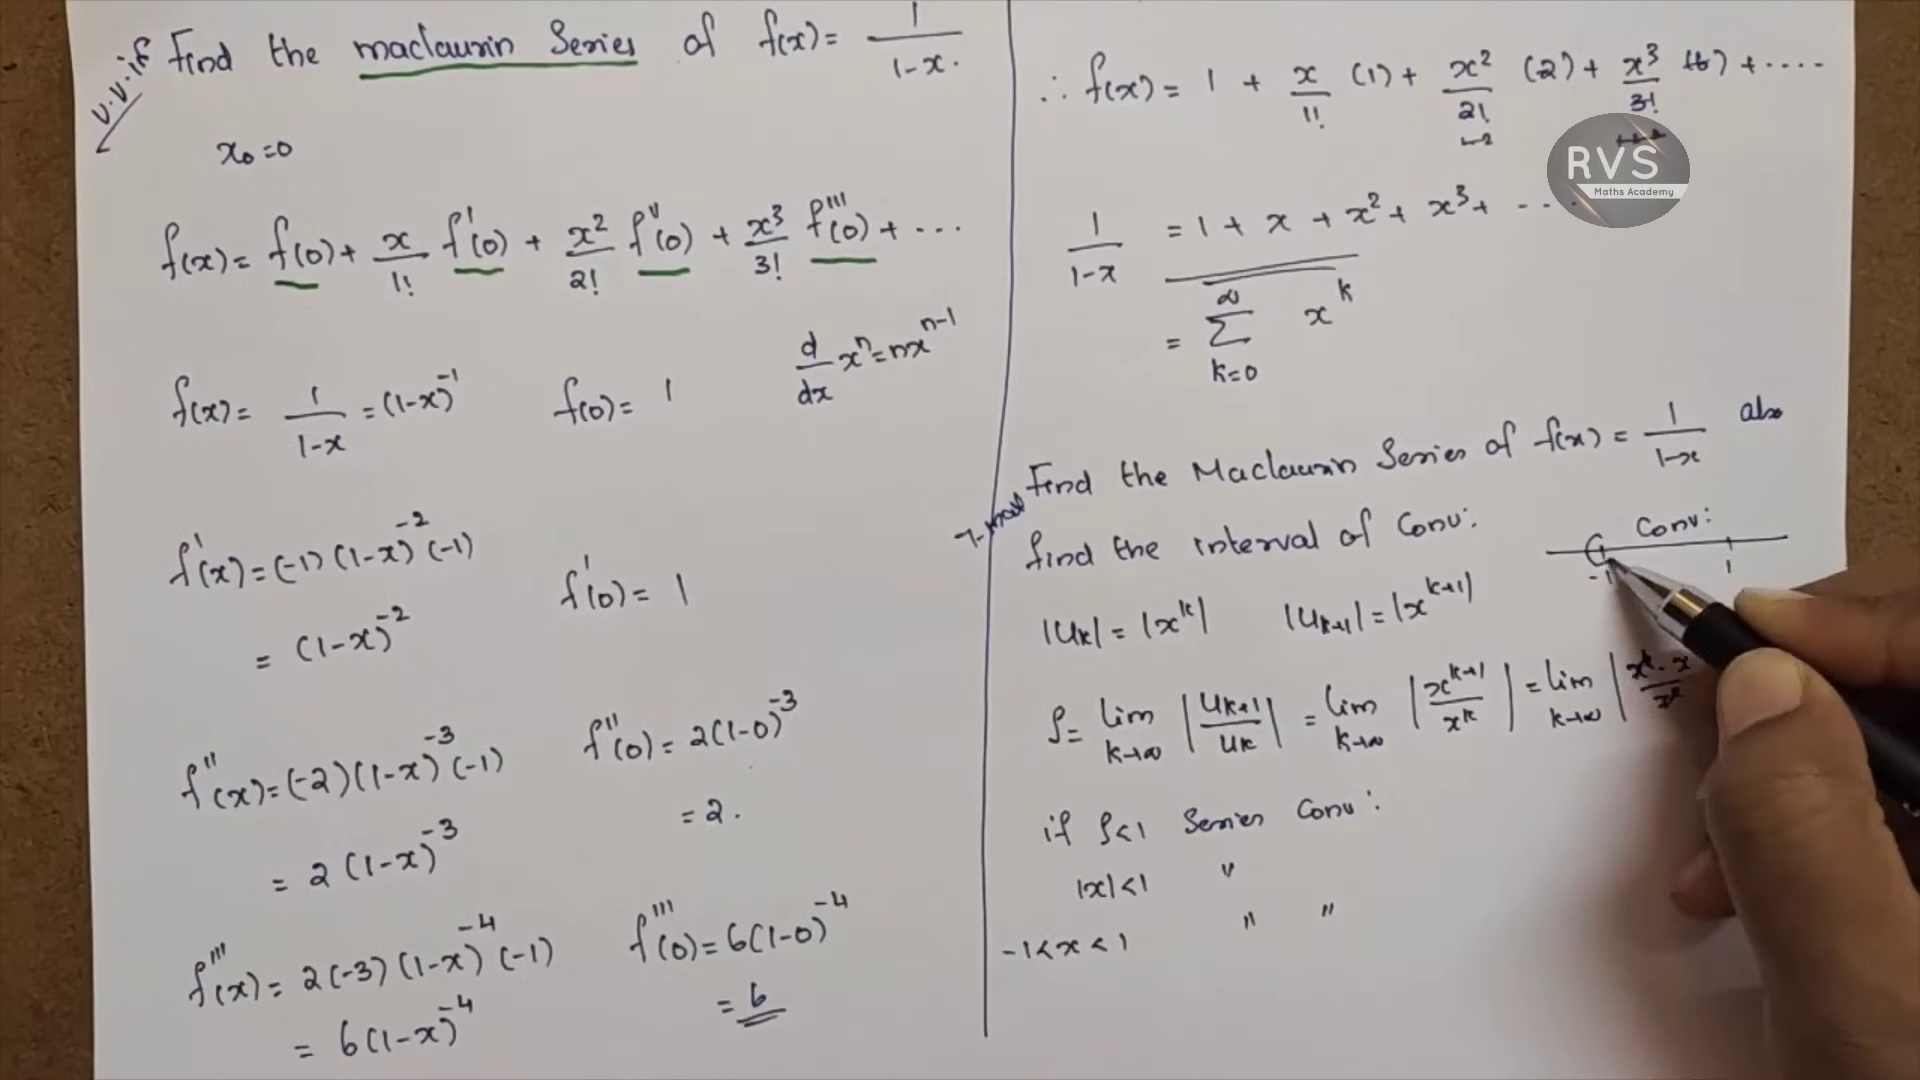 v.v.if
Find the maclaurin Series of f(x) = 1/1-x.
x₀ = 0
f(x) = f(0) + x/1! f'(0) + x²/2! f''(0) + x³/3! f'''(0) + ...
d/dx xⁿ = nxⁿ⁻¹
f(x) = 1/1-x = (1-x)⁻¹ f(0) = 1
f'(x) = (-1)(1-x)⁻²(-1)
= (1-x)⁻² f'(0) = 1
f''(x) = (-2)(1-x)⁻³(-1) f''(0) = 2(1-0)⁻³
= 2(1-x)⁻³ = 2.
f'''(x) = 2(-3)(1-x)⁻⁴(-1) f'''(0) = 6(1-0)⁻⁴
= 6(1-x)⁻⁴ = 6
∴ f(x) = 1 + x/1! (1) + x²/2! (2) + x³/3! (6) + ....
RVS
Maths Academy
1/1-x = 1 + x + x² + x³ + ....
= ∞ Σ k=0 xᵏ
Find the Maclaurin Series of f(x) = 1/1-x also
find the interval of Conv:
Conv:
-1 1
|uₖ| = |xᵏ| |uₖ₊₁| = |xᵏ⁺¹|
ρ = lim k→∞ |uₖ₊₁/uₖ| = lim k→∞ |xᵏ⁺¹/xᵏ| = lim k→∞ |xᵏ·x/xᵏ
if ρ<1 Series Conv:
|x|<1 "
-1<x<1 " "